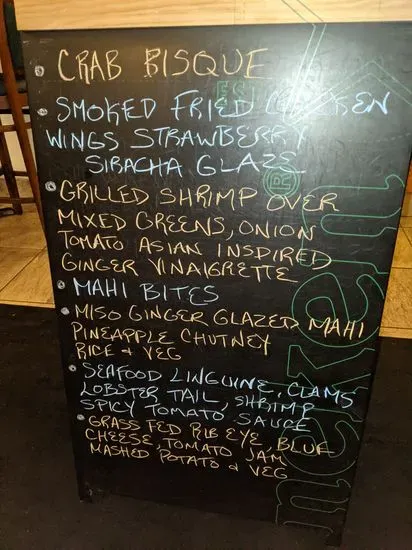 CRAB BISQUE
SMOKED FRIED CHICKEN
WINGS STRAWBERRY
SIRACHA GLAZE
GRILLED SHRIMP OVER
MIXED GREENS, ONION
TOMATO ASIAN INSPIRED
GINGER VINAIGRETTE
MAHI BITES
MISO GINGER GLAZED MAHI
PINEAPPLE CHUTNEY
RICE & VEG
SEAFOOD LINGUINE, CLAMS
LOBSTER TAIL, SHRIMP
SPICY TOMATO SAUCE
GRASS FED RIB EYE, BLUE
CHEESE TOMATO JAM
MASHED POTATO & VEG